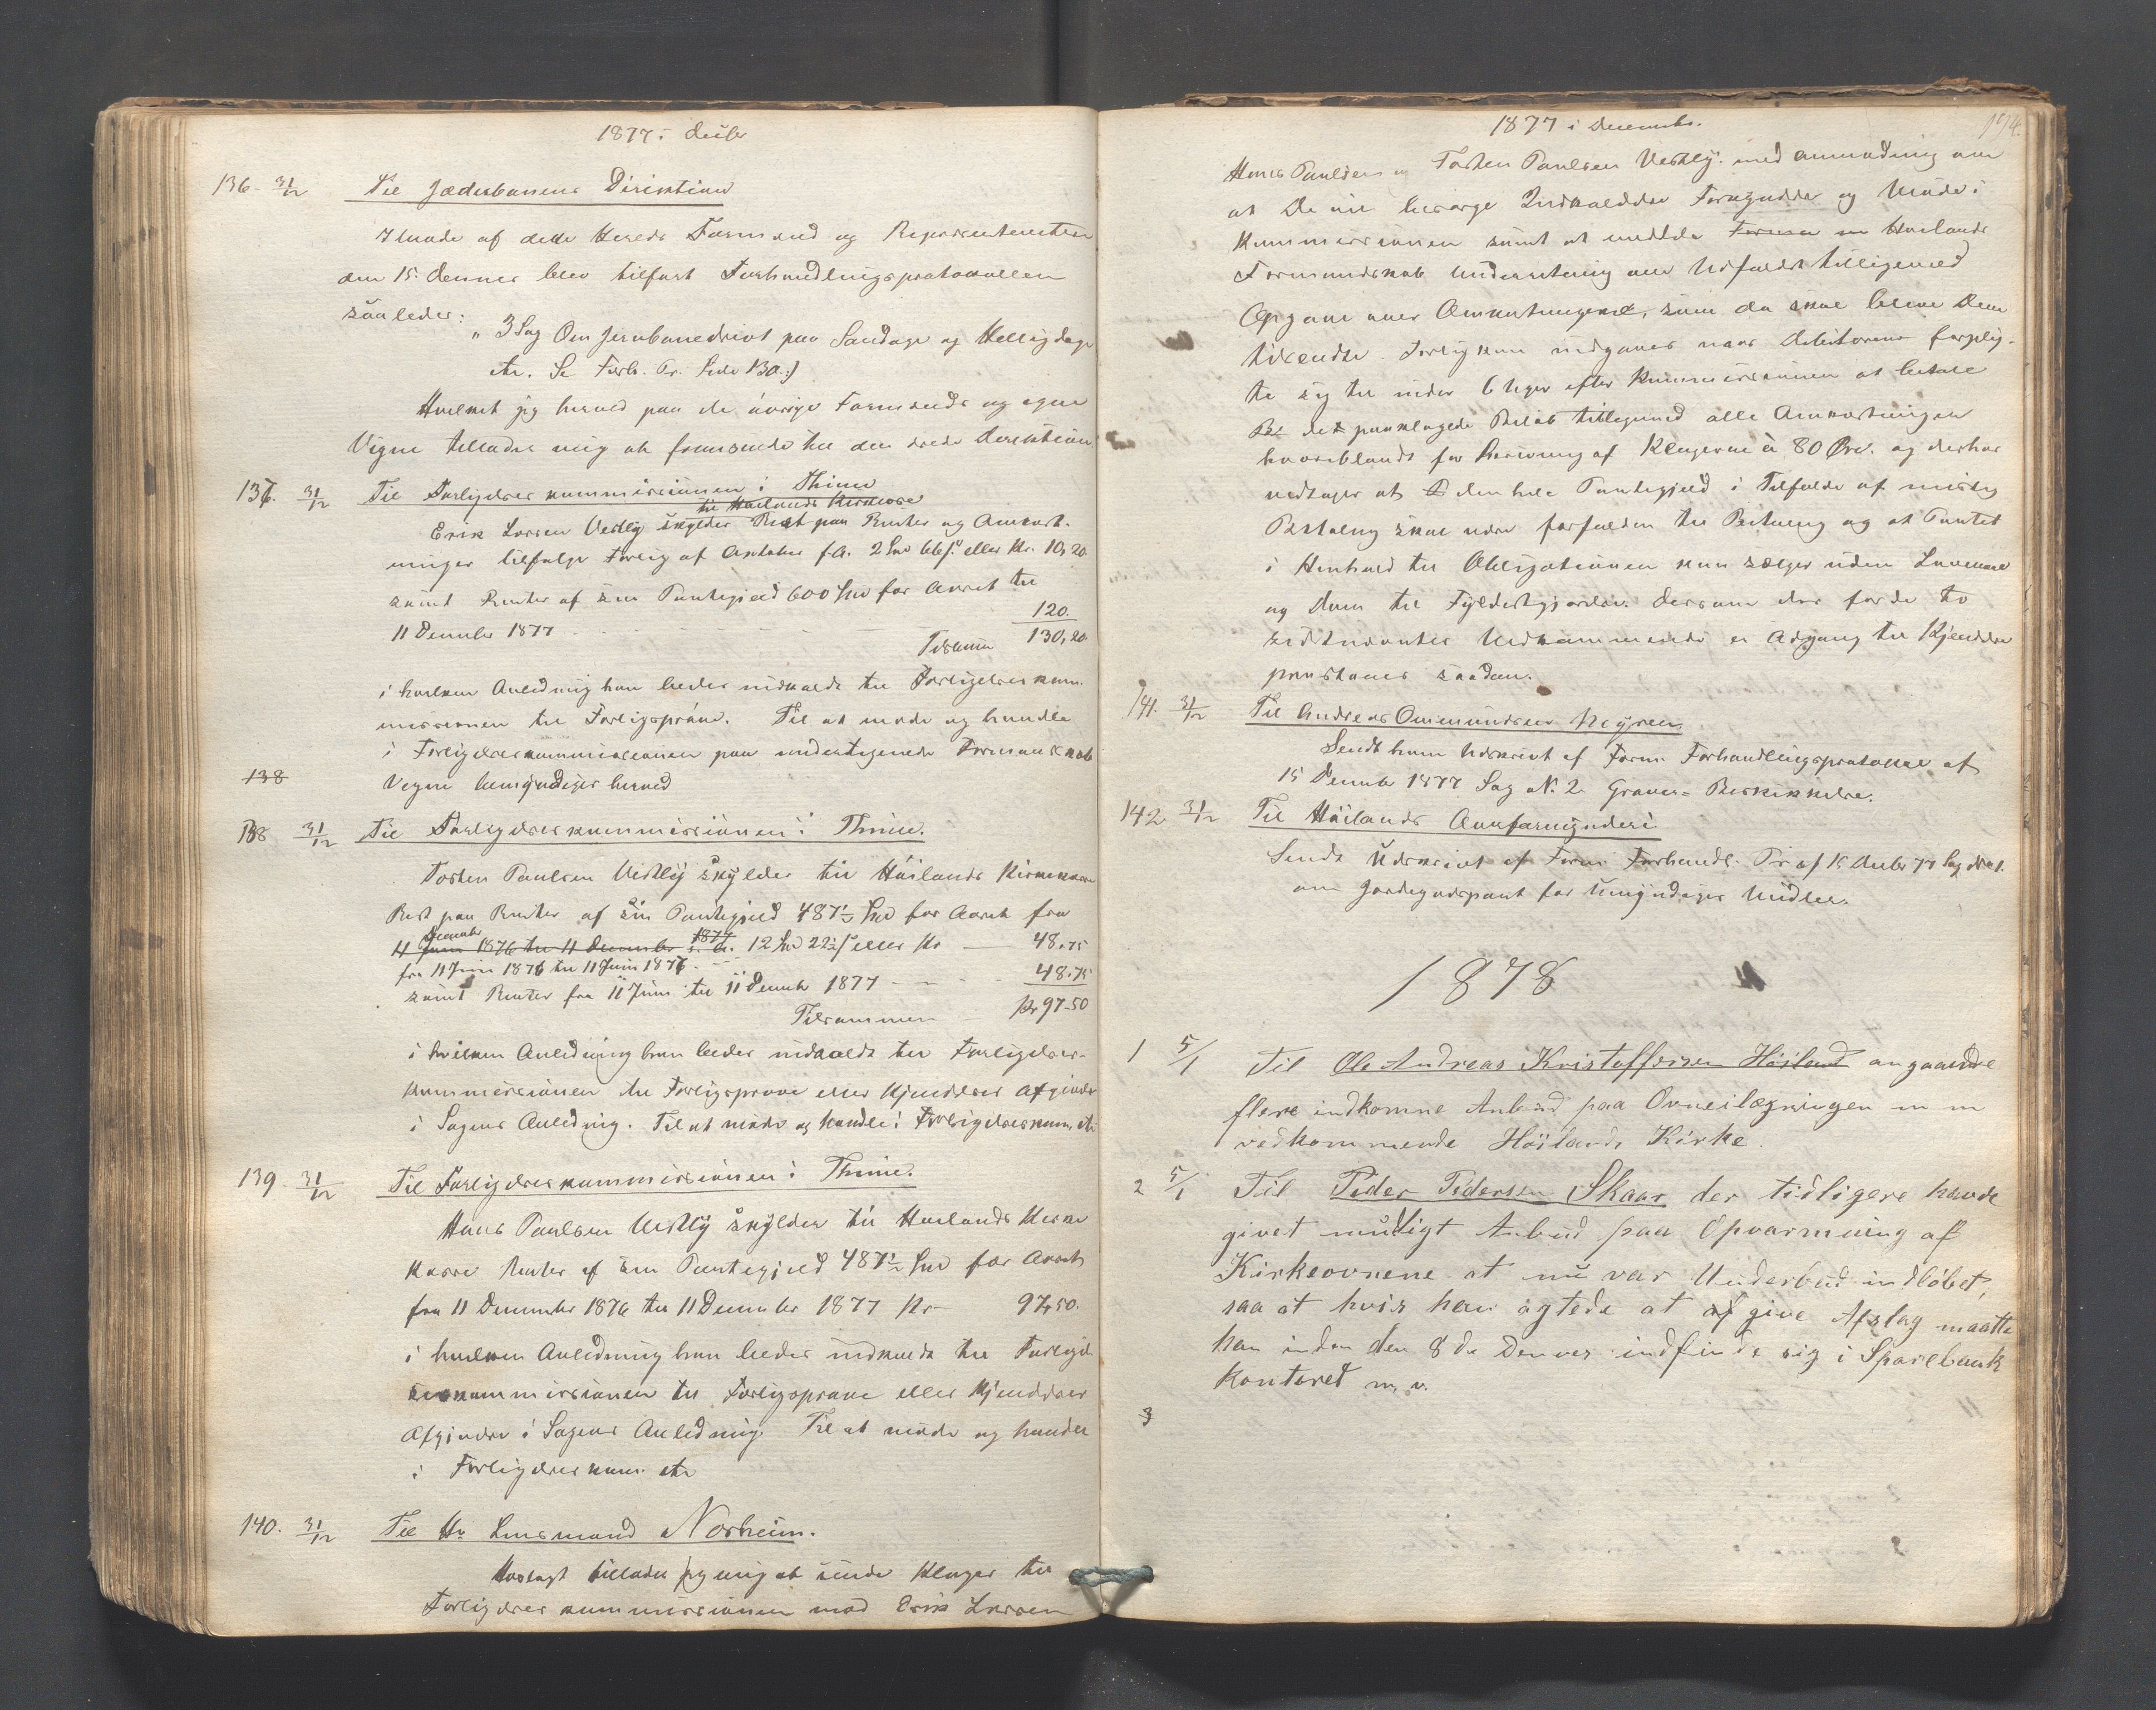 1877 i Decbr
136 - 31/12 Til Jæderbanens Direktion
I Møde af dette Herreds Formænd og Repræsentanter
den 15. dennes blev tilført Forhandlingsprotokollen
saaledes:
" 3 Sag Om Jernbanedrivt paa Søndage og Helligdage
etc. Se Forh. Pr. Side 130.:)
Hvilket jeg herved paa de øvrige Formænds og egne
Vegne tillader mig at fremsende til den ærede Direktion
137. 31/12 Til Forligelseskommissionen i Thime
til Høilands Kirkekasse
Erik Larsen Vestly skylder Rest paa Renter og Omkost-
ninger tilfølge Forlig af Oktober f.A. 2 Spd 66 ß. eller Kr. 10,20
samt Renter af sin Pantegjæld 600 Spd for Aaret til
11 December 1877 - - - 120.
Tilsammen 130,20
i hvilken Anledning han bedes indkaldt til Forligelseskom-
missionen til Forligsprøve. Til at møde og handle
i Forligelseskommissionen paa undertegnede Formandskabs
138 Vegne bemyndiges herved
138 31/12 Til Forligelseskommissionen i Thime.
Tosten Paulsen Vestly skylder til Høilands Kirkekasse
Rest paa Renter af sin Pantegjæld 487½ Spd for Aaret fra
December 1877
11 Juni 1876 til 11 December f. A. 12 Spd 22½ ß eller Kr — 48.75
fra 11 Juni 1876 til 11 Juni 1877. - -
samt Renter fra 11 Juni til 11 Decemb 1877 - - - 48.75
Tilsammen — Kr 97-50
i hvilken Anledning han bedes indkaldt til Forligelses-
kommissionen til Forligsprøve eller Kjendelses Afgivelse
i Sagens Anledning. Til at møde og handle i Forligelseskom. etc
139. 31/12 Til Forligelseskommissionen i Thime.
Hans Paulsen Vestly skylder til Høilands Kirke
kasse Renter af sin Pantegjæld 487½ Spd for Aaret
fra 11 December 1876 til 11 December 1877 Kr - 97,50.
i hvilken Anledning han bedes indkaldt til Forligel-
seskommissionen til Forligsprøve eller Kjendelses
Afgivelse i Sagens Anledning. Til at møde og handle
i Forligelseskom. etc
140. 31/12 Til Hr. Lensmand Norheim.
Vedlagt tillader jeg mig at sende Klager til
Forligelseskommissionen mod Erik Larsen
1877 i December.
174.
Hans Paulsen og Tosten Paulsen Vestly. med anmodning om
at De vil besørge Indkaldelse Forkyndt og Møde i
Kommissionen samt at meddele Forman m Høilands
Formandskab Underretning om Udfaldet tilligemed
Opgave over Omkostningerne, som da skal blive Dem
tilsendt. Forlig kan indgaaes naar Debitorerne forplig-
te sig til inden 6 Uger efter Kommissionen at betale
Bel det paaklagede Beløb tilligemed alle Omkostninger
hvoriblandt for Skrivning af Klagerne à 80 Øre. og derhos
vedtager at den hele Pantegjæld i Tilfælde af mislig
Betaling skal være forfalden til Betaling og at Pantet
i Henhold til Obligationen kan sælges uden Lovmaal
og Dom til Fyldestgjørelse. Dersom der for de to
sidstnævntes Vedkommende er Adgang til Kjendelse
paastaaes saadan.
141. 31/12 Til Andreas Ommundsen Høyren
Sendt ham Udskrivt af Form. Forhandlingsprotokol af
15 Decemb 1877 Sag N. 2 Graver-Beskikkelse.
142 31/12 Til Høilands Overformynderi
Sendt Udskrivt af Form. Forhandl. Pr. af 15 Decbr 77 Sag No 1.
om Jordegodspant for Umyndiges Midler.
1878
1 5/1 Til Ole Andreas Kristoffersen Høiland angaaende
flere indkomne Anbud paa Ovneilægningen m m
vedkommende Høilands Kirke.
2 5/1 Til Peder Pedersen Skaar der tidligere havde
givet mundtligt Anbud paa Opvarmning af
Kirkeovnene at nu var Underbud indløbet,
saa at hvis han agtede at af give Afslag maatte
han inden den 8de Dennes indfinde sig i Sparebank
kontoret m. v.
3